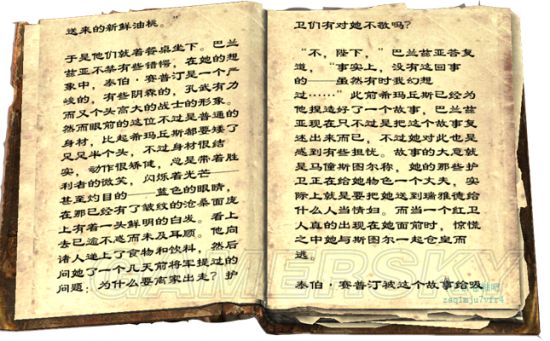 送来的新鲜油桃。
于是他们就着餐桌坐下。巴兰
兹亚不禁有些错愕，在她的想
象中，泰伯·赛普汀是一个严
峻的，有些阴森的，孔武有力
而又个头高大的战士的形象。
然而眼前的这位不过是普通的
身材，比起希玛丘斯都要矮了
足足半个头，不过身材很结
实，动作很矫健，总是带着胜
利者的微笑，闪烁着光芒——
甚至灼目的——蓝色的眼睛，
在那已经有了皱纹的沧桑面庞
上有着一头鲜明的白发。看上
去已逾不惑而未及耳顺。他向
诸人递上了食物和饮料，然后
问她了一个几天前将军提过的
问题：为什么要离家出走？护
卫们有对她不敬吗？
“不，陛下，”巴兰兹亚答复
道，“事实上，没有这回事
的——虽然有时我幻想
过……”此前希玛丘斯已经为
他捏造好了一个故事，巴兰兹
亚现在只不过是把这个故事复
述出来而已，不过她对此也是
感到有些担忧。故事的大意就
是马僮斯图尔称，她的那些护
卫正在给她物色一个丈夫，实
际上就是要把她送到瑞雅德给
什么人当情妇。而当一个红卫
人真的出现在她面前时，惊慌
之中她与斯图尔一起仓皇而
逃。
泰伯·赛普汀被这个故事给吸
GAMERSKY
zaq1mju7vfr4